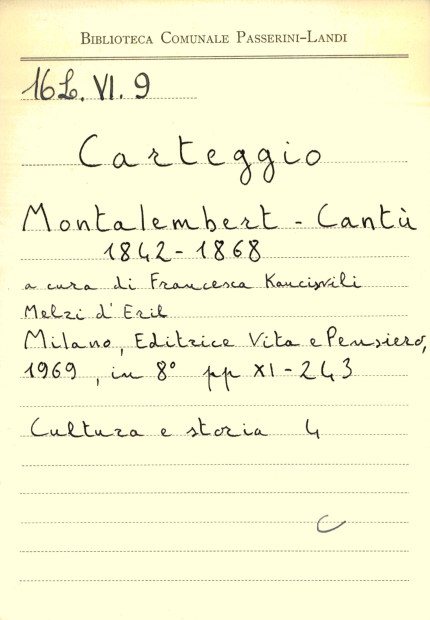 BIBLIOTECA COMUNALE PASSERINI-LANDI
16L. VI. 9
Carteggio
Montalembert - Cantù
1842 - 1868
a cura di Francesca Kaucisvili
Melzi d'Eril
Milano, Editrice Vita e Pensiero,
1969, in 8° pp XI - 243
Cultura e storia 4
C